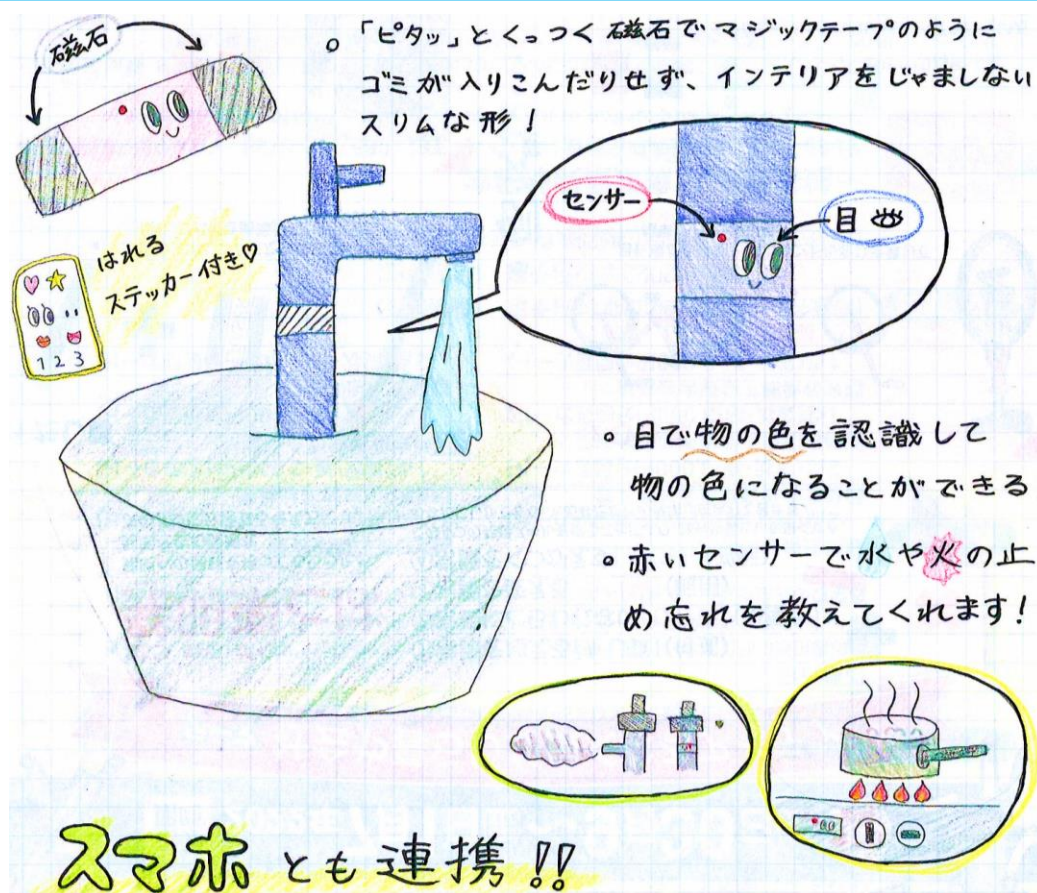 磁石
。「ピタッ」とくっつく磁石でマジックテープのように
ゴミが入りこんだりせず、インテリアをじゃましない
スリムな形！
センサー
目
はれる
ステッカー付き♡
1 2 3
。目で物の色を認識して
物の色になることができる
。赤いセンサーで水や火の止
め忘れを教えてくれます！
スマホとも連携!!